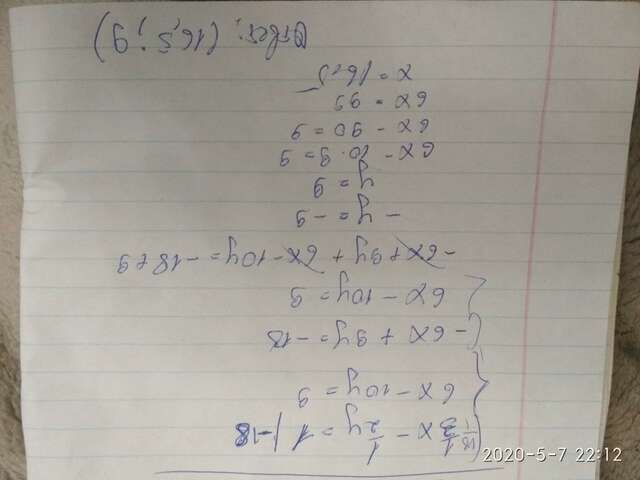 1/3 x - 1/2 y = 1 | -18
6x - 10y = 9
-6x + 9y = -18
6x - 10y = 9
-6x + 9y + 6x - 10y = -18 + 9
- y = -9
y = 9
6x - 10·9 = 9
6x - 90 = 9
6x = 99
x = 16,5
Ответ: (16,5; 9)
2020-5-7 22:12